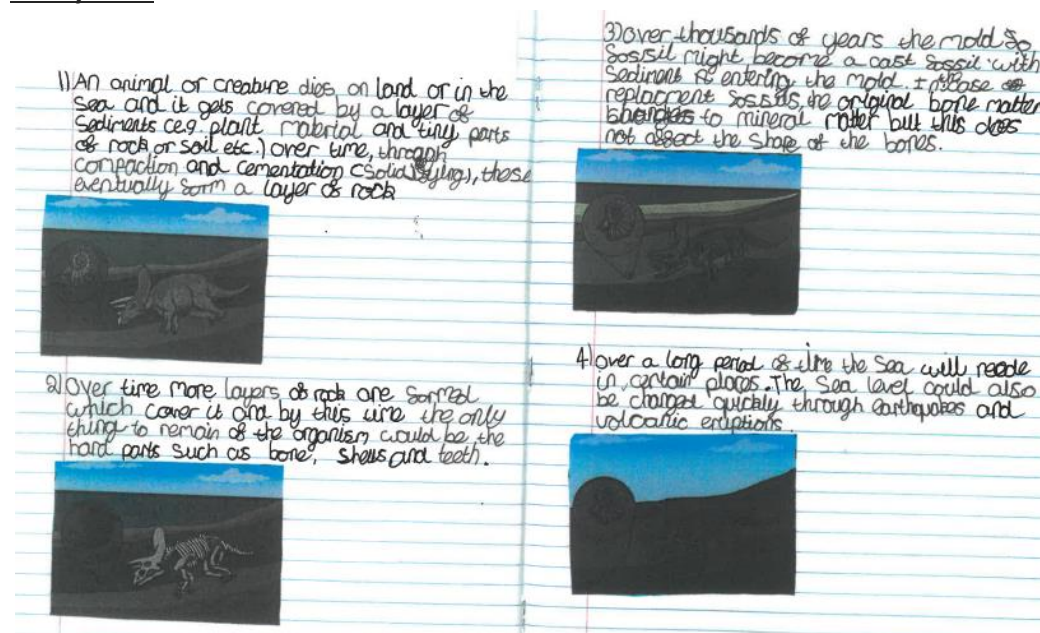 1) An animal or creature dies, on land or in the
sea and it gets covered by a layer of
sediments (e.g. plant material and tiny parts
of rock or soil etc.) over time, through
compaction and cementation (solidifying), these
eventually form a layer of rock
2) Over time more layers of rock are formed
which cover it and by this time the only
thing to remain of the organism would be the
hard parts such as bone, shells and teeth.
3) Over thousands of years the mold
fossil might become a cast fossil with
sediment entering the mold. In case
replacment fossils, the original bone matter
changes to mineral matter but this does
not affect the shape of the bones.
4) Over a long period of time the sea will recede
in certain places. The sea level could also
be changed quickly through earthquakes and
volcanic eruptions.